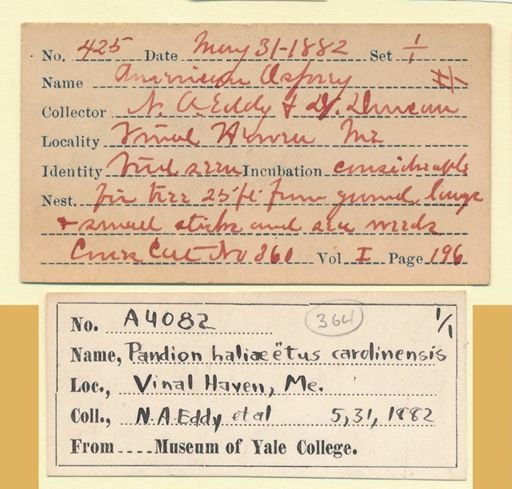 No. 425 Date May 31-1882 Set 1/1
Name American Osprey
Collector N. A. Eddy & D. Duncan
Locality Vinal Haven Me
Identity Bird seen Incubation considerable
Nest. fir tree 25 ft from ground large
+ small sticks and sea weeds
Coues Cat No 360 Vol I Page 196
No. A4082 364 1/1
Name, Pandion haliaëtus carolinensis
Loc., Vinal Haven, Me.
Coll., N.A.Eddy et al 5,31,1882
From ---- Museum of Yale College.